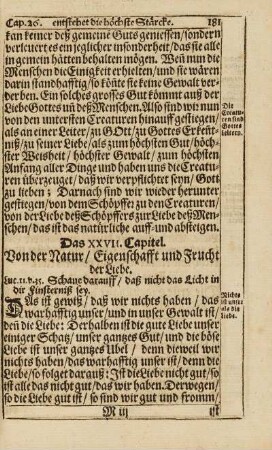 Cap. 26. entstehet die höchste Stärcke. 181
kan keiner deß gemeine Guts geniessen/sondern
verleuret es ein jeglicher insonderheit/das sie alle
in gemein hätten behalten mögen. Weñ nun die
Menschen die Einigkeit erhielten/und sie wären
darin standhafftig/so könte sie keine Gewalt ver-
derben. Ein solches grosses Gut könnt auß der
Liebe Gottes uñ deß Menschen. Also sind wir nun
von den untersten Creaturen hinauff gestiegen/
als an einer Leiter/ zu GOtt/zu Gottes Erkent-
niß/zu seiner Liebe/als zum höchsten Gut/höch-
ster Weisheit / höchster Gewalt / zum höchsten
Anfang aller Dinge und haben uns die Creatu-
ren überzeuget / daß wir verpflichtet seyn/ Gott
zu lieben ; Darnach sind wir wieder herunter
gestiegen/von dem Schöpffer zu den Creaturen/
von der Liebe deß Schöpffers zur Liebe deß Men-
schen / das ist das natürliche auff- und absteigen.
Die
Creatu-
ren sind
Gottes
Leitern.
Das XXVII. Capitel.
Von der Natur / Eigenschafft und Frucht
der Liebe.
Luc. 11. v. 35. Schaue darauff / daß nicht das Licht in
dir Finsterniß sey.
DAs ist gewiß/ daß wir nichts haben / das
warhafftig unser/und in unser Gewalt ist/
deñ die Liebe: Derhalben ist die gute Liebe unser
einiger Schatz/ unser gantzes Gut/ und die böse
Liebe ist unser gantzes Übel / denn dieweil wir
nichts haben/das warhafftig unser ist/denn die
Liebe/so folget darauß: Ist die Liebe nicht gut/ so
ist alle das nicht gut/das wir haben. Derwegen/
so die Liebe gut ist/ so sind wir gut und fromm/
Nichts
ist unser
als die
Liebe.
M iij ist